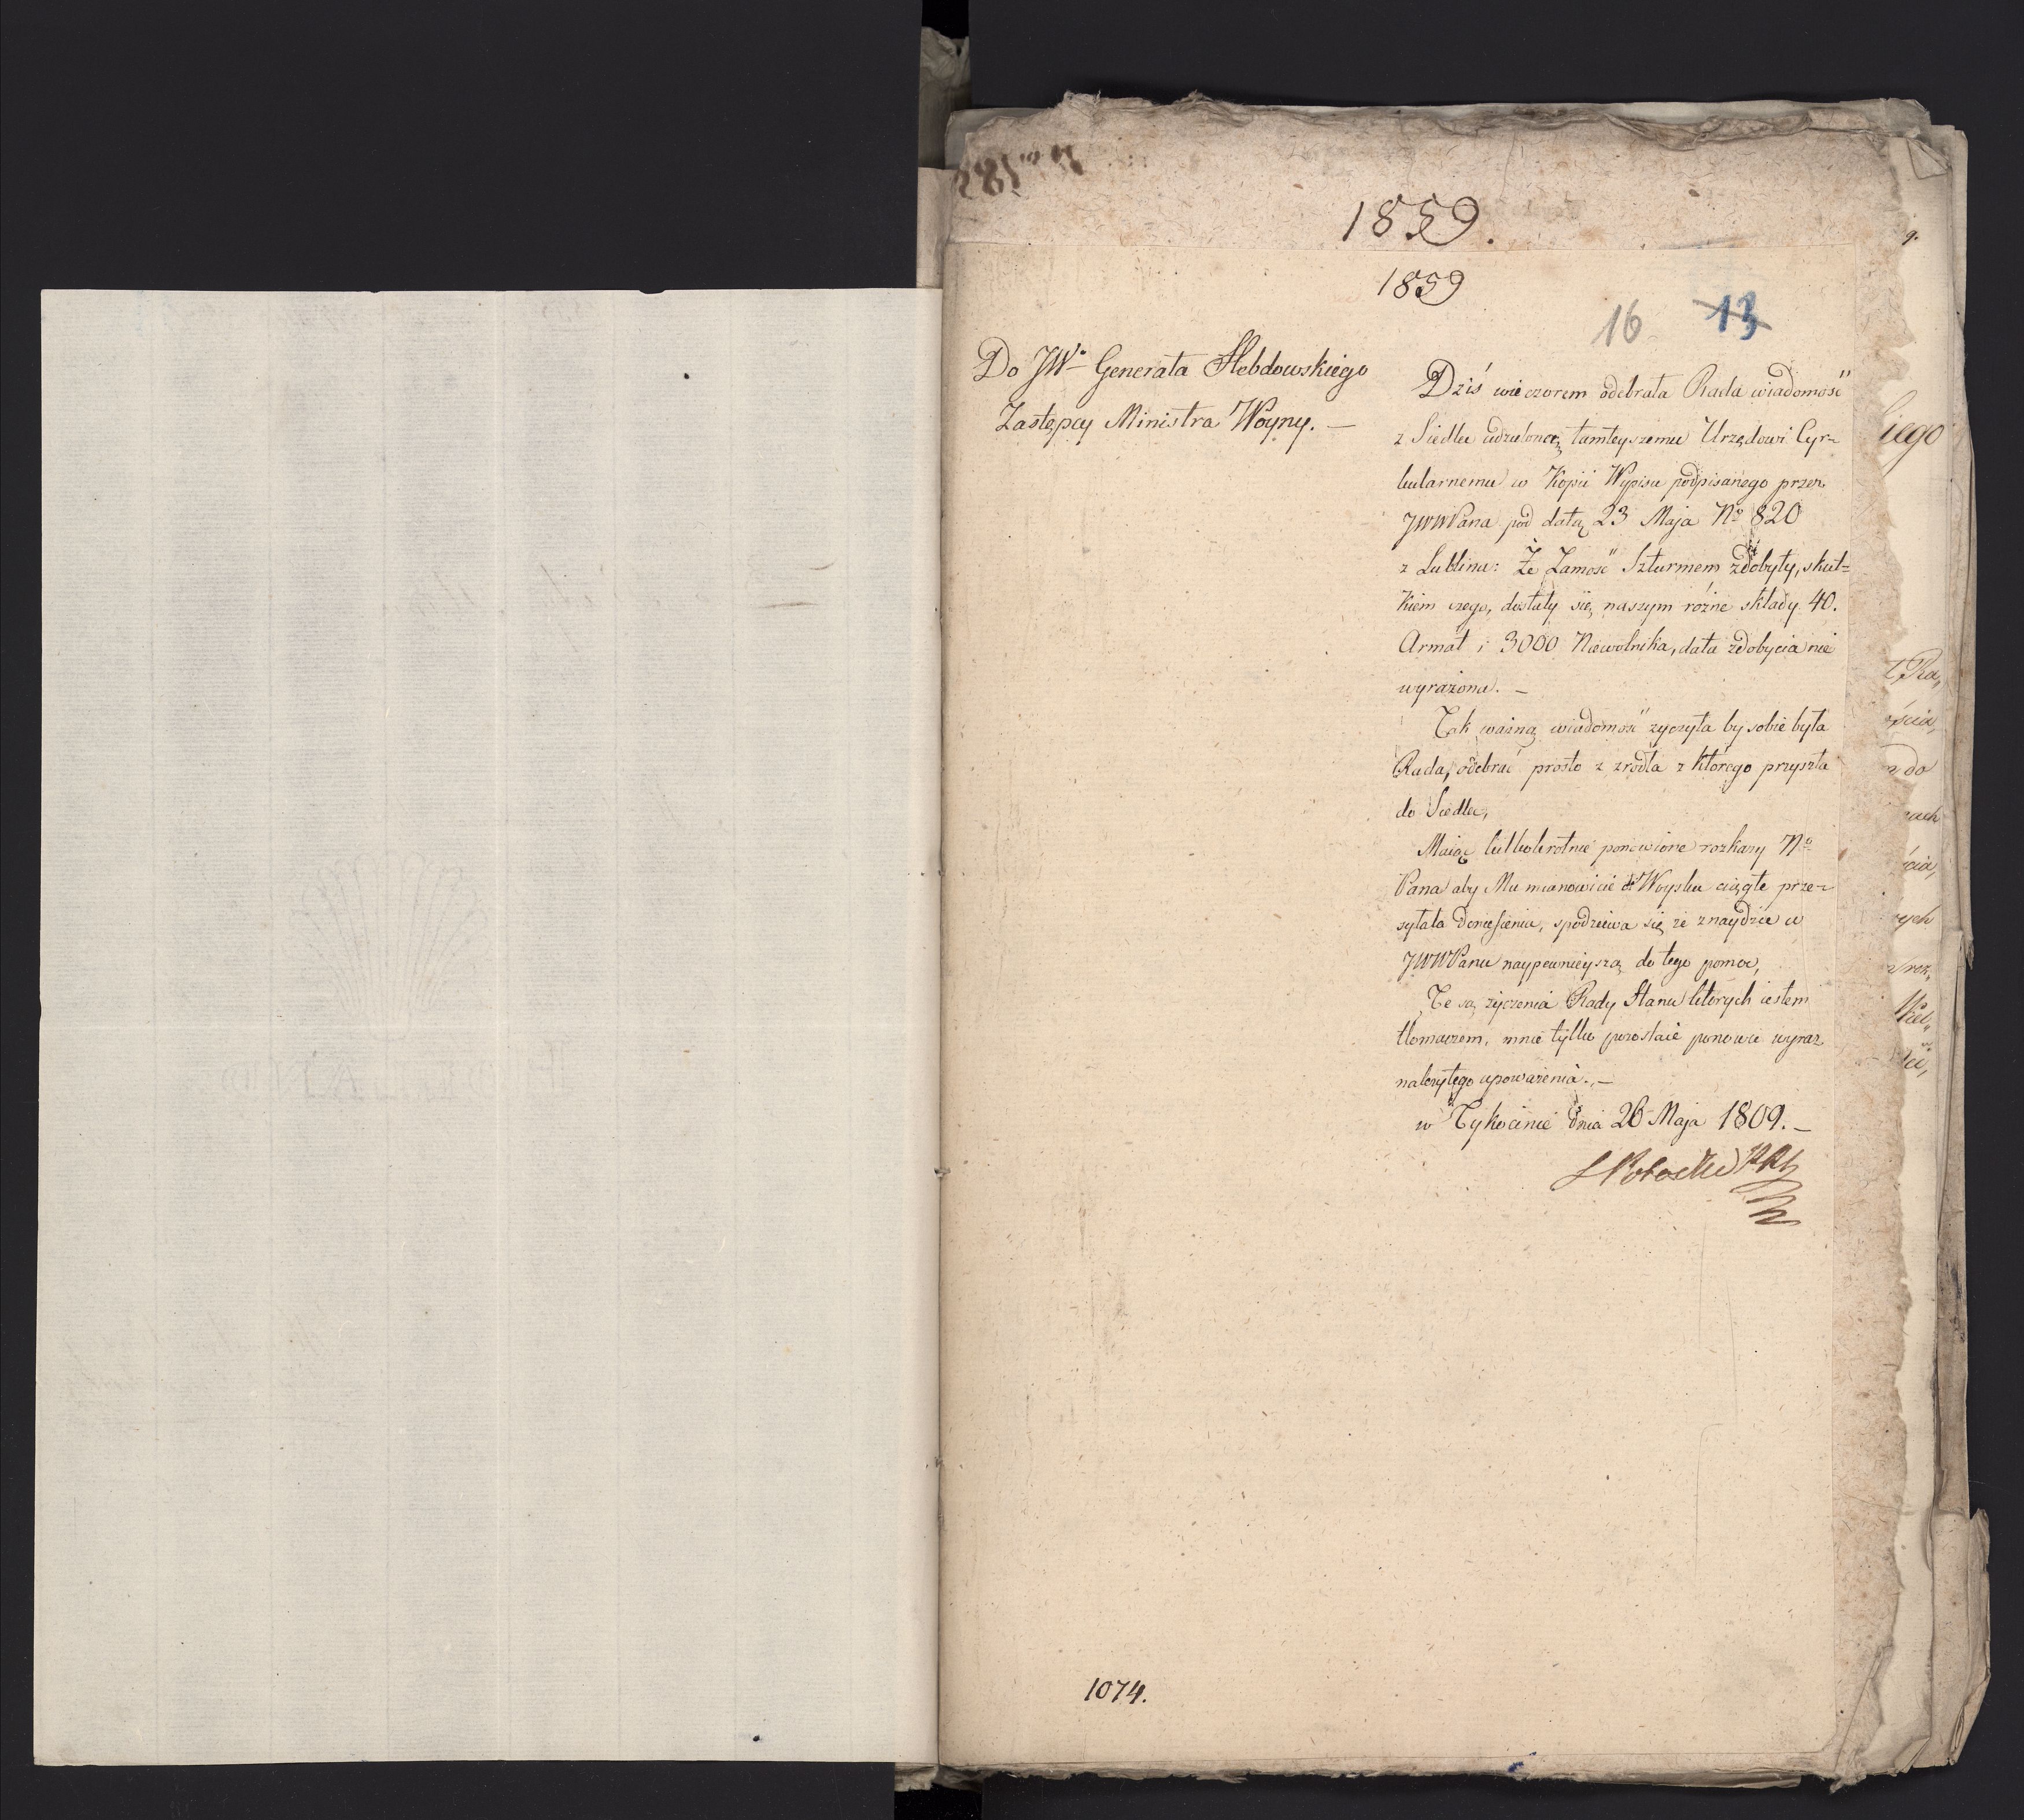 1859.
1859
16 13
Do JWo Generała Hebdowskiego
Zastępcy Ministra Woyny. —
Dziś wieczorem odebrała Rada wiadomość
z Siedlec udzieloną tamteyszemu Urzędowi Cyr=
kularnemu w Kopii Wypisu podpisanego przez
JWWPana pod datą 23 Maja No 820
z Lublina: Że Zamość Szturmem zdobyty, skut=
kiem czego, dostały się naszym różne składy 40.
Armat i 3000 Niewolnika, data zdobycia nie
wyrażona. —
Tak ważną wiadomość życzyła by sobie była
Rada, odebrać prosto z źrodła z którego przyszła
do Siedlec,
Maiąc kilkokrotnie ponowione rozkazy No
Pana aby Mu mianowicie o Woysku ciągłe prze=
syłała doniesienia, spodziewa się że znaydzie w
JWWPanu naypewnieyszą do tego pomoc,
Te są życzenia Rady Stanu których iestem
tłomaczem, mnie tylko pozostaie ponowić wyraz
należytego upoważenia. —
w Tykocinie dnia 26 Maja 1809. —
S Potocki
1074.
9.
iego
t Ra„
ścia,
do
ach
ścia,
ych